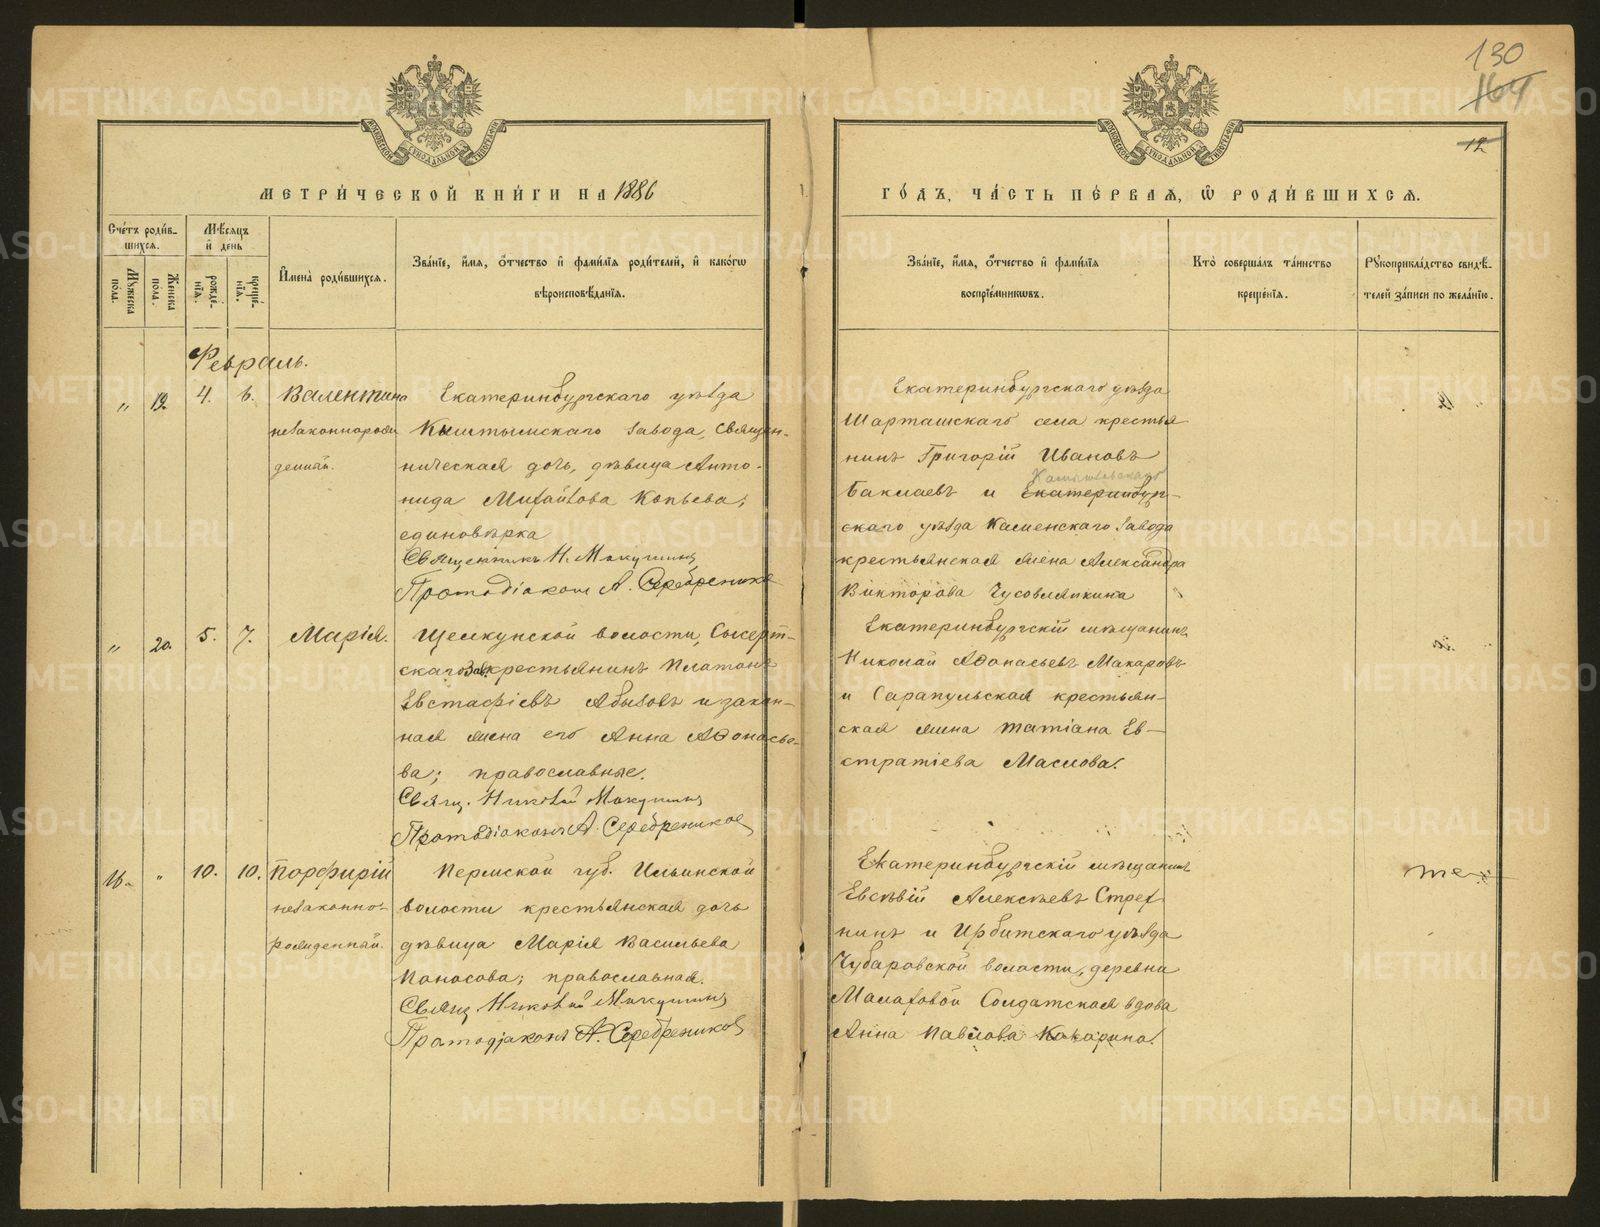 130
164
12
МОСКОВСКОЙ СѴНОДАЛЬНОЙ ТИПОГРАФІИ
МОСКОВСКОЙ СѴНОДАЛЬНОЙ ТИПОГРАФІИ
МЕТРИ́ЧЕСКОЙ КНИ́ГИ НА 1886
ГО́ДЪ, ЧА́СТЬ ПЕ́РВАЯ, Ѡ РОДИ́ВШИХСЯ.
Сче́тъ роди́в-
шихся.
Мꙋжеска по́ла.
Женска пола.
Мѣ́сяцъ
и҆ де́нь
рожде-
нїѧ.
креще-
нїѧ.
И҆мена̀ роди́вшихся.
Зва́нїе, и҆́мя, ѻ҆́тчество и҆ фами́лїя роди́телей, и҆ како́гѡ
вѣроисповѣ́данїя.
Зва́нїе, и҆́мя, ѻ҆́тчество и҆ фами́лїя
воспрїе́мникѡвъ.
Кто̀ совершалъ та́инство
креще́нїя.
Рꙋкоприкла́дство свидѣ́-
телей за́писи по жела́нїю.
Февраль.
„ 19. 4. 6. Валентина
незаконнорож
денная.
Екатеринбургскаго уѣзда
Кыштымскаго завода, Священ-
ническая дочь, дѣвица Анто-
нида Михайлова Копьева;
единовѣрка
Священникъ Н. Макушинъ
Протодіаконъ А. Серебрениковъ
Екатеринбургскаго уѣзда
Шарташскаго села крестья
нинъ Григорій Ивановъ
Камышловскаго
Баклаевъ и Екатеринбург-
скаго уѣзда Каменскаго завода
крестьянская жена Александра
Викторова Чусовлянкина
„ 20. 5. 7. Марія.
Щелкунской волости, Сысерт-
скаго Зав. крестьянинъ Платонъ
Евстафіевъ Абызовъ и закон-
ная жена его Анна Аѳонасье-
ва; православные.
Свящ. Николай Макушинъ
Протодіаконъ А. Серебрениковъ
Екатеринбургскій мѣщанинъ
Николай Аѳонасьевъ Макаровъ
и Сарапульская крестьян-
ская жена Татіана Ев-
стратіева Маслова.
16. „ 10. 10. Порфирій
незаконно-
рожденный.
Пермской губ. Ильинской
волости крестьянская дочь
дѣвица Марія Васильева
Паносова; православная.
Свящ. Николай Макушинъ
Протодіаконъ А. Серебрениковъ
Екатеринбургскій мѣщанинъ
Евсѣвій Алексѣевъ Стрех
нинъ и Ирбитскаго уѣзда
Чубаровской волости, деревни
Малаховой Солдатская вдова
Анна Павлова Кокарина.
METRIKI.GASO-URAL.RU